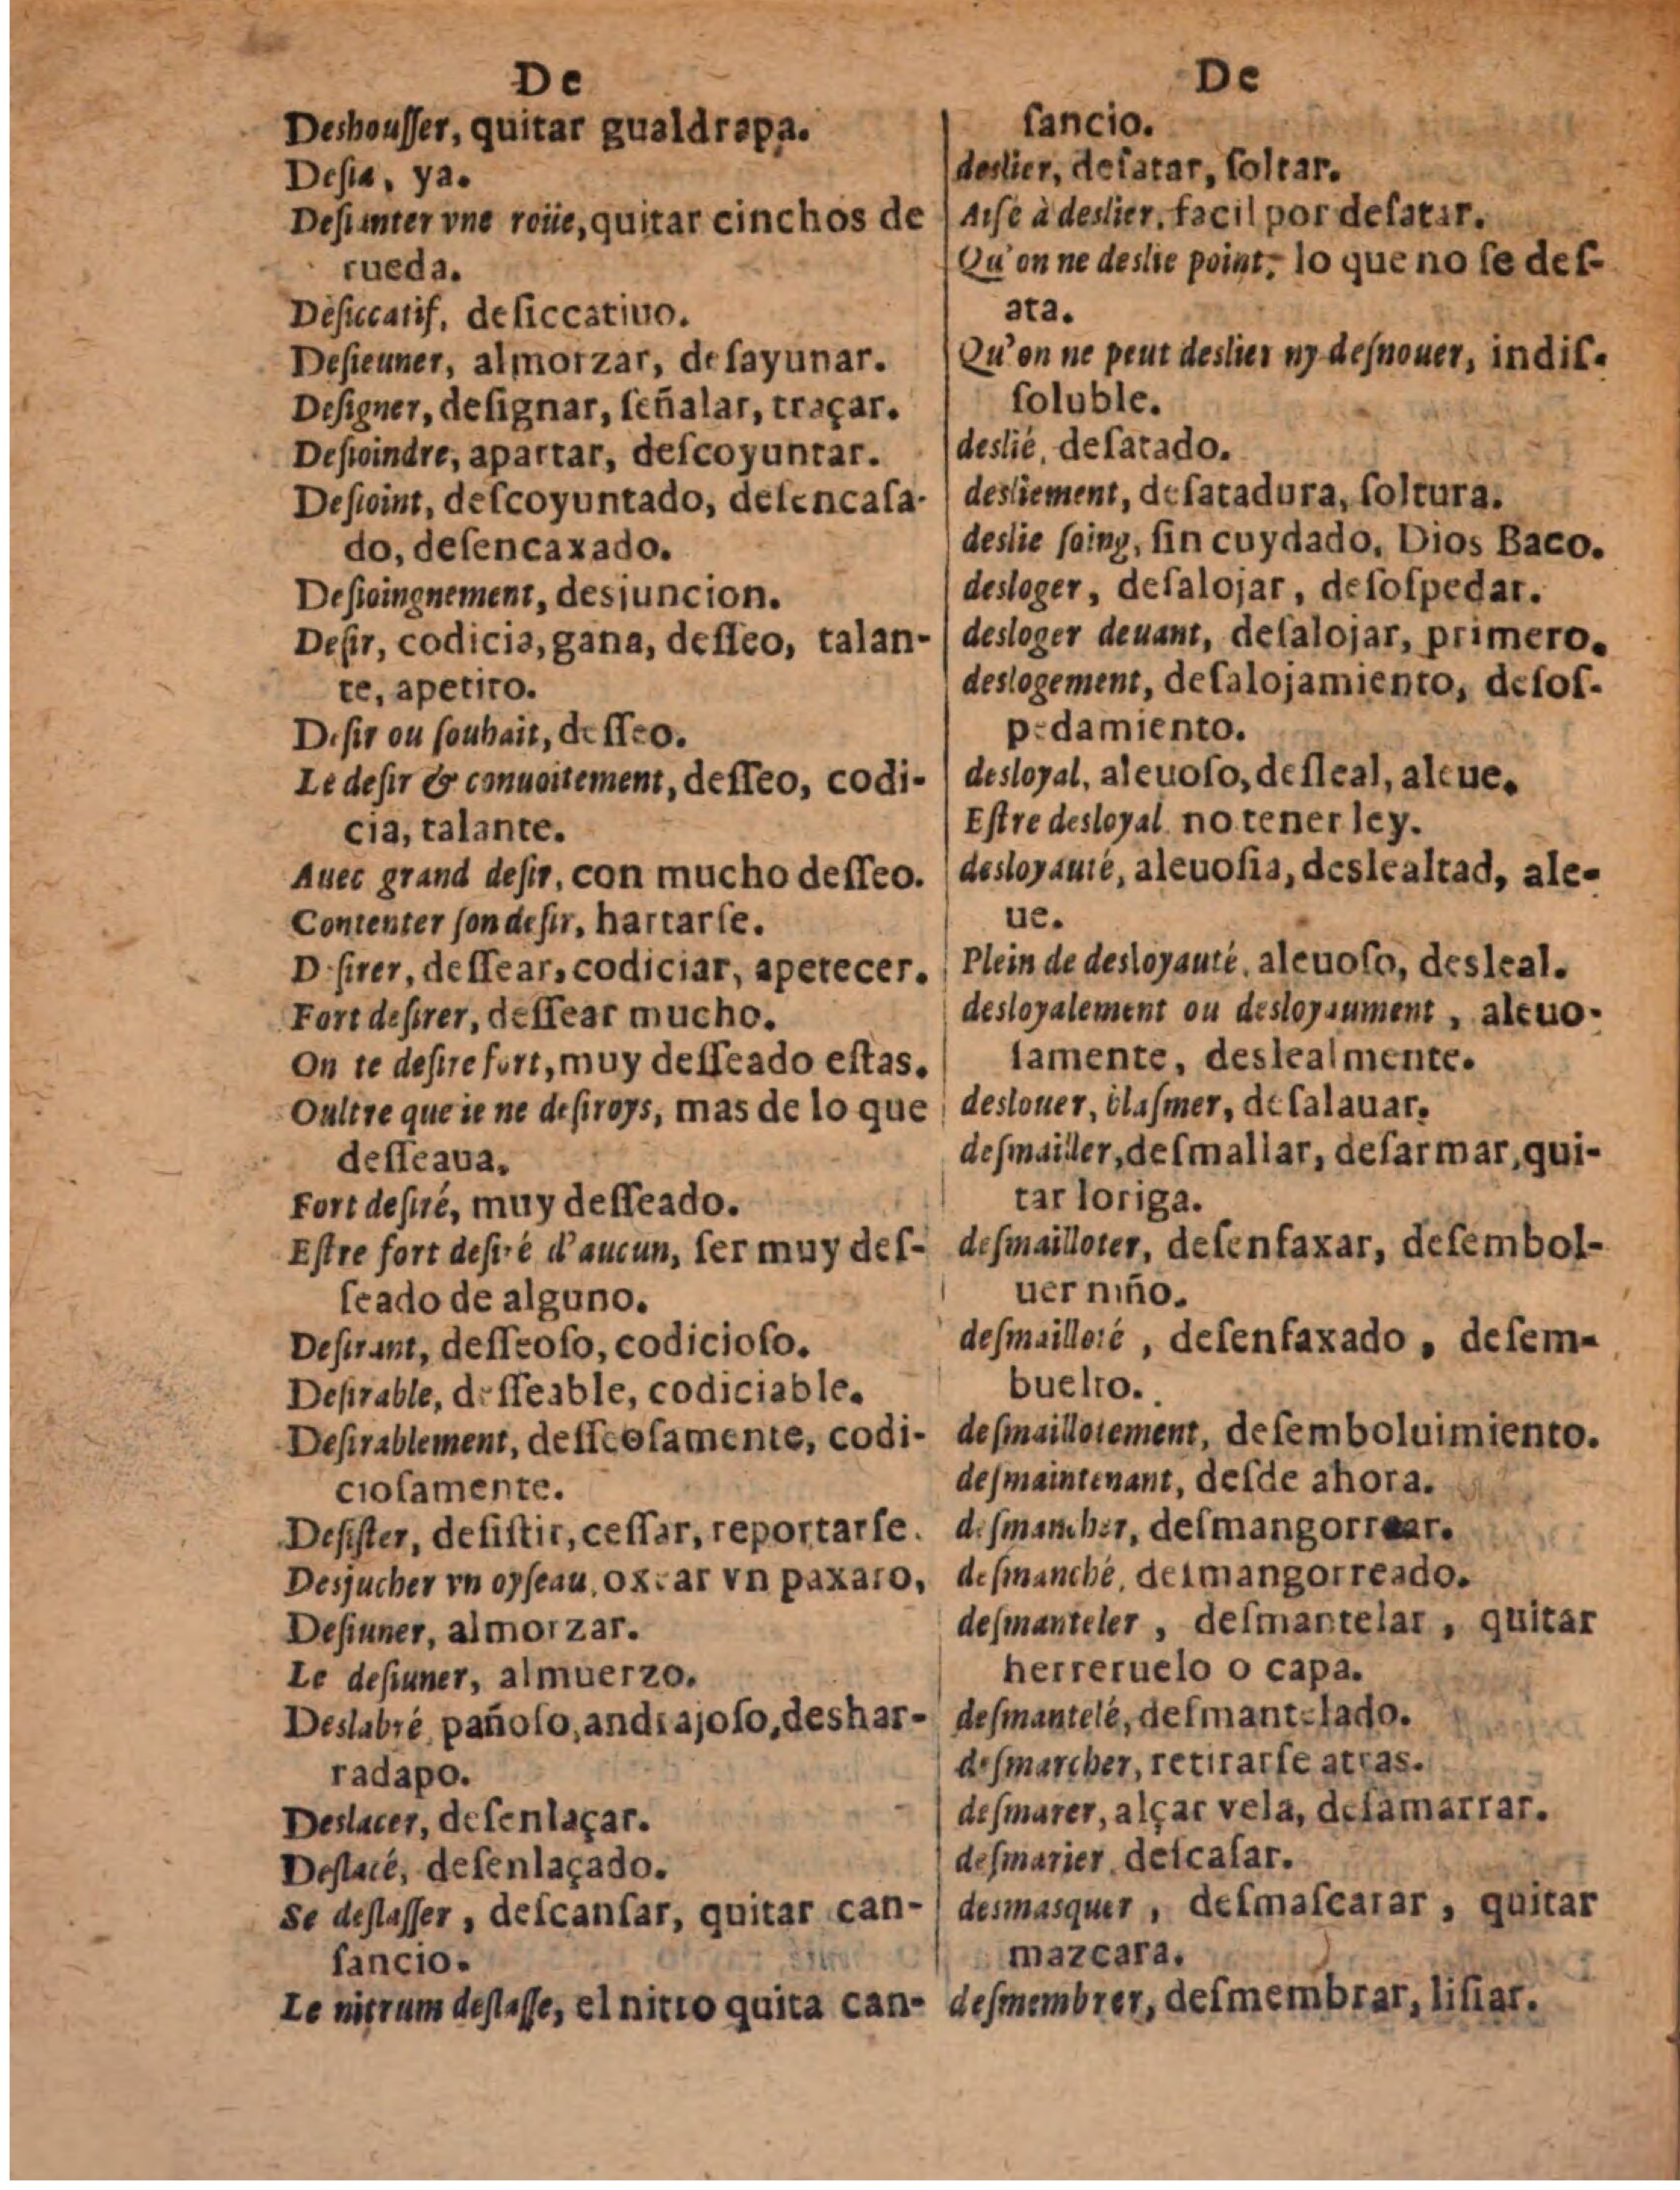 De
Deshouſſer, quitar gualdrapa.
Deſia, ya.
Deſianter vne roüe, quitar cinchos de
rueda.
Deſiccatif, deſiccatiuo.
Deſieuner, almorzar, deſayunar.
Deſigner, deſignar, ſeñalar, traçar.
Deſioindre, apartar, deſcoyuntar.
Deſioint, deſcoyuntado, deſencaſa-
do, deſencaxado.
Deſioingnement, desjuncion.
Deſir, codicia, gana, deſſeo, talan-
te, apetito.
Deſir ou ſouhait, deſſeo.
Le deſir & conuoitement, deſſeo, codi-
cia, talante.
Auec grand deſir, con mucho deſſeo.
Contenter ſon deſir, hartarſe.
Deſirer, deſſear, codiciar, apetecer.
Fort deſirer, deſſear mucho.
On te deſire fort, muy deſſeado eſtas.
Oultre que ie ne deſiroys, mas de lo que
deſſeaua.
Fort deſiré, muy deſſeado.
Eſtre fort deſiré d'aucun, ſer muy deſ-
ſeado de alguno.
Deſirant, deſſeoſo, codicioſo.
Deſirable, deſſeable, codiciable.
Deſirablement, deſſeoſamente, codi-
cioſamente.
Deſiſter, deſiſtir, ceſſar, reportarſe.
Desjucher vn oyſeau, oxear vn paxaro,
Deſiuner, almorzar.
Le deſiuner, almuerzo.
Deslabré, pañoſo, andrajoſo, deshar-
radapo.
Deslacer, deſenlaçar.
Deſlacé, deſenlaçado.
Se deſlaſſer, deſcanſar, quitar can-
ſancio.
Le nitrum deſlaſſe, el nitro quita can-
De
ſancio.
deslier, deſatar, ſoltar.
Aiſe à deslier, facil por deſatar.
Qu'on ne deslie point, lo que no ſe deſ-
ata.
Qu'on ne peut deslier ny deſnouer, indiſ-
ſoluble.
deslié, deſatado.
desliement, deſatadura, ſoltura.
deslie ſoing, ſin cuydado, Dios Baco.
desloger, deſalojar, deſoſpedar.
desloger deuant, deſalojar, primero.
deslogement, deſalojamiento, deſoſ-
pedamiento.
desloyal, aleuoſo, deſleal, aleue.
Eſtre desloyal no tener ley.
desloyauté, aleuoſia, deslealtad, ale-
ue.
Plein de desloyauté, aleuoſo, desleal.
desloyalement ou desloyaument, aleuo-
ſamente, deslealmente.
deslouer, blaſmer, deſalauar.
deſmailler, deſmallar, deſarmar, qui-
tar loriga.
deſmailloter, deſenfaxar, deſembol-
uer niño.
deſmailloté, deſenfaxado, deſem-
buelto.
deſmaillotement, deſemboluimiento.
deſmaintenant, deſde ahora.
deſmancher, deſmangorrear.
deſmanché, deſmangorreado.
deſmanteler, deſmantelar, quitar
herreruelo o capa.
deſmantelé, deſmantelado.
deſmarcher, retirarſe atras.
deſmarer, alçar vela, deſamarrar.
deſmarier, deſcaſar.
desmasquer, deſmaſcarar, quitar
mazcara.
deſmembrer, deſmembrar, liſiar.